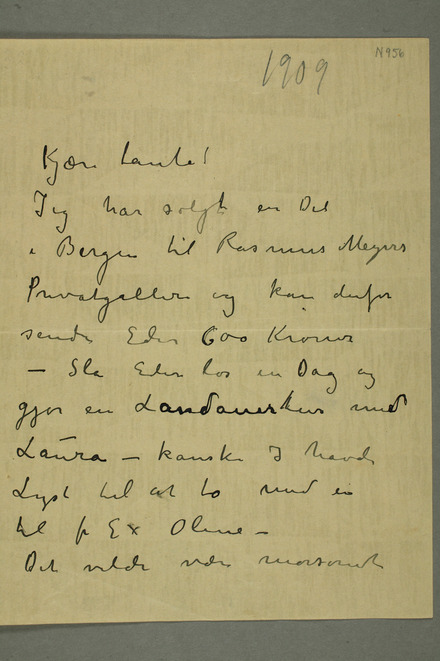 N 956
1909
Kjære tante!
Jeg har solgt en Del
i Bergen til Rasmus Meyers
Privatgalleri og kan derfor
sende Eder 600 Kroner
– Slå Eder løs en Dag og
gjør en Landauertur med
Laura – kanske I havde
Lyst til at ta med en
til f Ex Oline –
Det vilde være morsomt